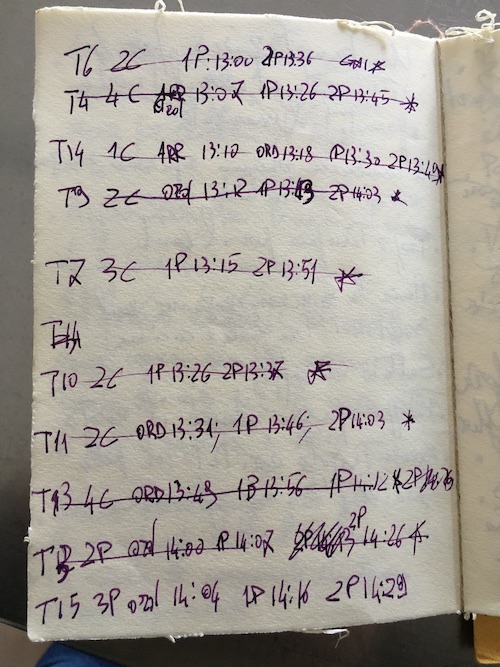 T6 2C 1P: 13:00 2P 13:36 *
T4 4C ord 13:07 1P 13:26 2P 13:45 *
T14 1C ARR 13:10 ORD 13:18 1P 13:30 2P 13:49 *
T9 2C ord 13:12 1P 2P 14:03 *
T7 3C 1P 13:15 2P 13:51 *
T10 2C 1P 13:26 2P 13:37 *
T11 2C ORD 13:34; 1P 13:46; 2P 14:03 *
T13 4C ORD 13:43 13:56 1P 14:12 * 2P
2P ord 14:00 1P 14:07 2P 14:26 *
T15 3P ord 14:04 1P 14:16 2P 14:29